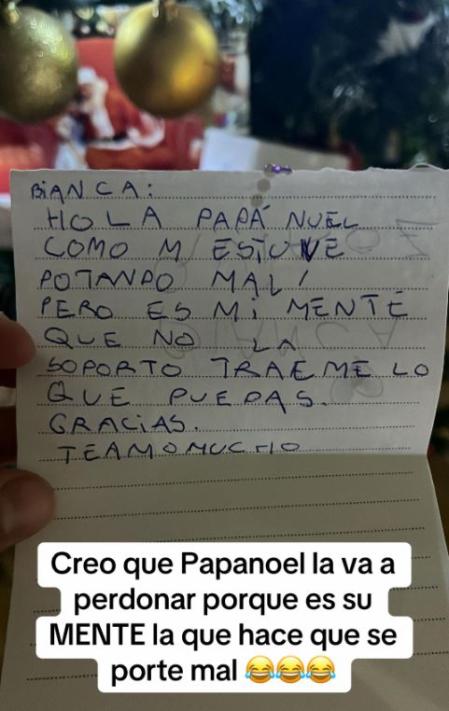 BIANCA:
HOLA PAPÁ NUEL
COMO M ESTUVE
POTANDO MAL/
PERO ES MI MENTE
QUE NO LA
SOPORTO TRAEME LO
QUE PUEDAS.
GRACIAS.
TEAMOMUCHO
Creo que Papanoel la va a
perdonar porque es su
MENTE la que hace que se
porte mal 😂😂😂